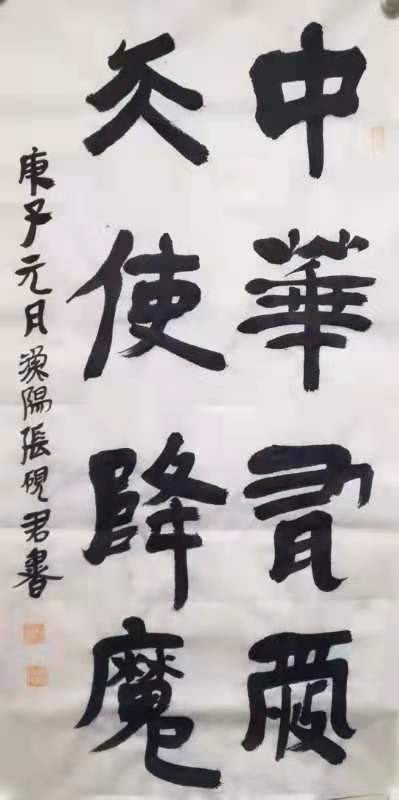 中華有愛
天使降魔
庚子元月漁陽張硯君書